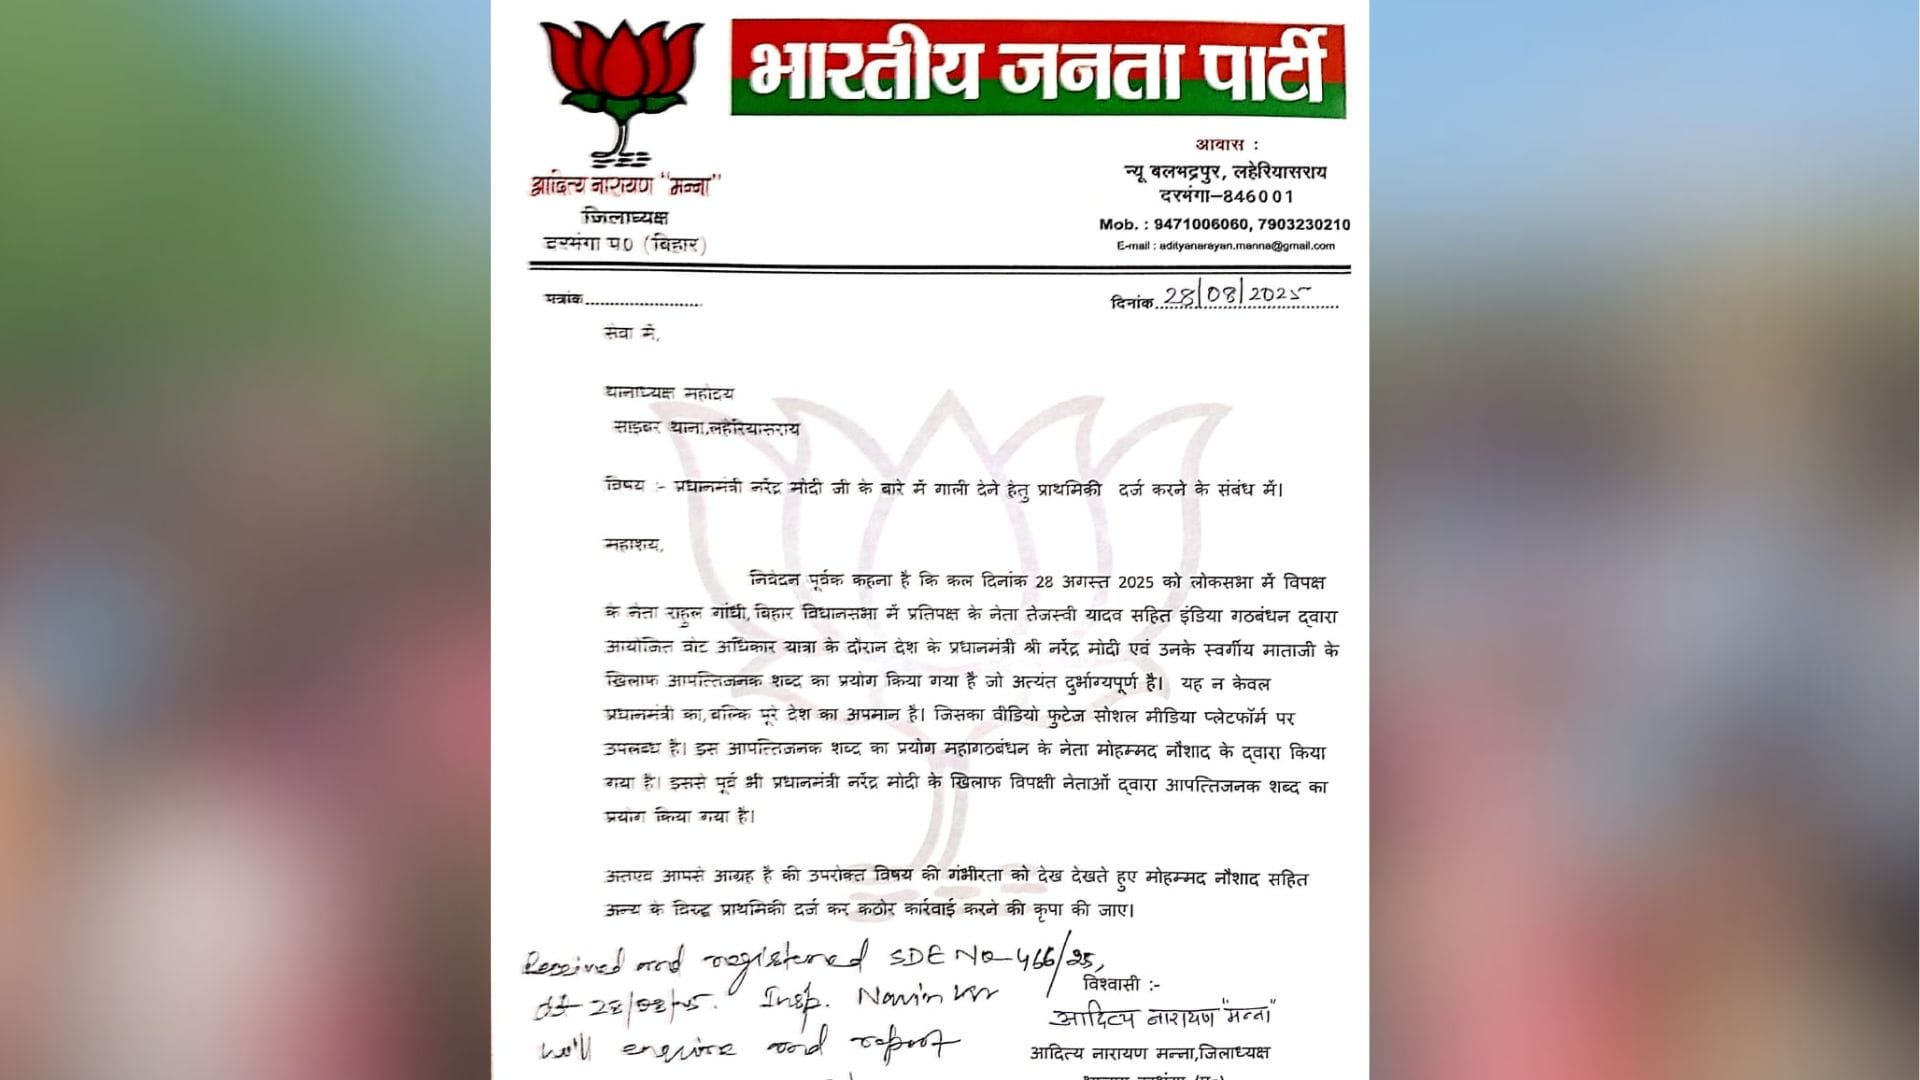 भारतीय जनता पार्टी
आदित्य नारायण "मन्ना"
जिलाध्यक्ष
दरभंगा प0 (बिहार)
आवास :
न्यू बलभद्रपुर, लहेरियासराय
दरभंगा-846001
Mob. : 9471006060, 7903230210
E-mail : adityanarayan.manna@gmail.com
पत्रांक........................
दिनांक 28/08/2025
सेवा में,
थानाध्यक्ष महोदय
साइबर थाना,लहेरियासराय
विषय :- प्रधानमंत्री नरेंद्र मोदी जी के बारे में गाली देने हेतु प्राथमिकी दर्ज करने के संबंध में।
महाशय,
निवेदन पूर्वक कहना है कि कल दिनांक 28 अगस्त 2025 को लोकसभा में विपक्ष
के नेता राहुल गांधी,बिहार विधानसभा में प्रतिपक्ष के नेता तेजस्वी यादव सहित इंडिया गठबंधन द्वारा
आयोजित वोट अधिकार यात्रा के दौरान देश के प्रधानमंत्री श्री नरेंद्र मोदी एवं उनके स्वर्गीय माताजी के
खिलाफ आपत्तिजनक शब्द का प्रयोग किया गया है जो अत्यंत दुर्भाग्यपूर्ण है। यह न केवल
प्रधानमंत्री का,बल्कि पूरे देश का अपमान है। जिसका वीडियो फुटेज सोशल मीडिया प्लेटफॉर्म पर
उपलब्ध है। इस आपत्तिजनक शब्द का प्रयोग महागठबंधन के नेता मोहम्मद नौशाद के द्वारा किया
गया है। इससे पूर्व भी प्रधानमंत्री नरेंद्र मोदी के खिलाफ विपक्षी नेताओं द्वारा आपत्तिजनक शब्द का
प्रयोग किया गया है।
अतएव आपसे आग्रह है की उपरोक्त विषय की गंभीरता को देख देखते हुए मोहम्मद नौशाद सहित
अन्य के विरुद्ध प्राथमिकी दर्ज कर कठोर कार्रवाई करने की कृपा की जाए।
Received and registered SDE No-466/25,
dt 28/08/25. Insp. Navin kr
will enquire and report
विश्वासी :-
आदित्य नारायण "मन्ना"
आदित्य नारायण मन्ना,जिलाध्यक्ष